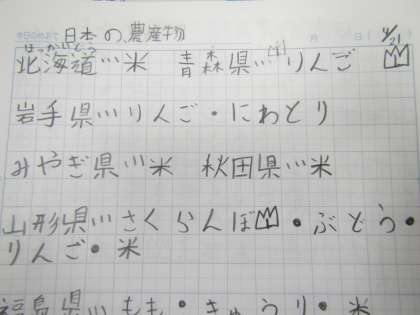 日本の農産物
4/21
ほっかいどう
北海道…米 青森県…りんご
岩手県…りんご・にわとり
みやぎ県…米 秋田県…米
山形県…さくらんぼ・ぶどう・
りんご・米
福島県…もも・きゅうり・米